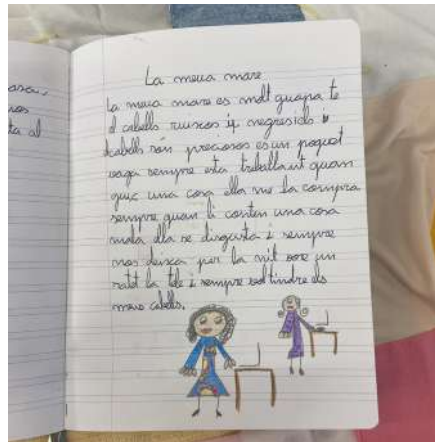 asa,
ros
ta al
La meua mare
La meua mare es molt guapa te
el cabells ruiscos i negresids
cabells son preciosos es un poquet
vaga sempre esta treballant quan
guic una cosa ella me la compra
sempre quan li conten una cosa
mala ella se disgusta i sempre
mos deixa per la nit vore un
ratet la tele i sempre vol tindre els
meus cabells.